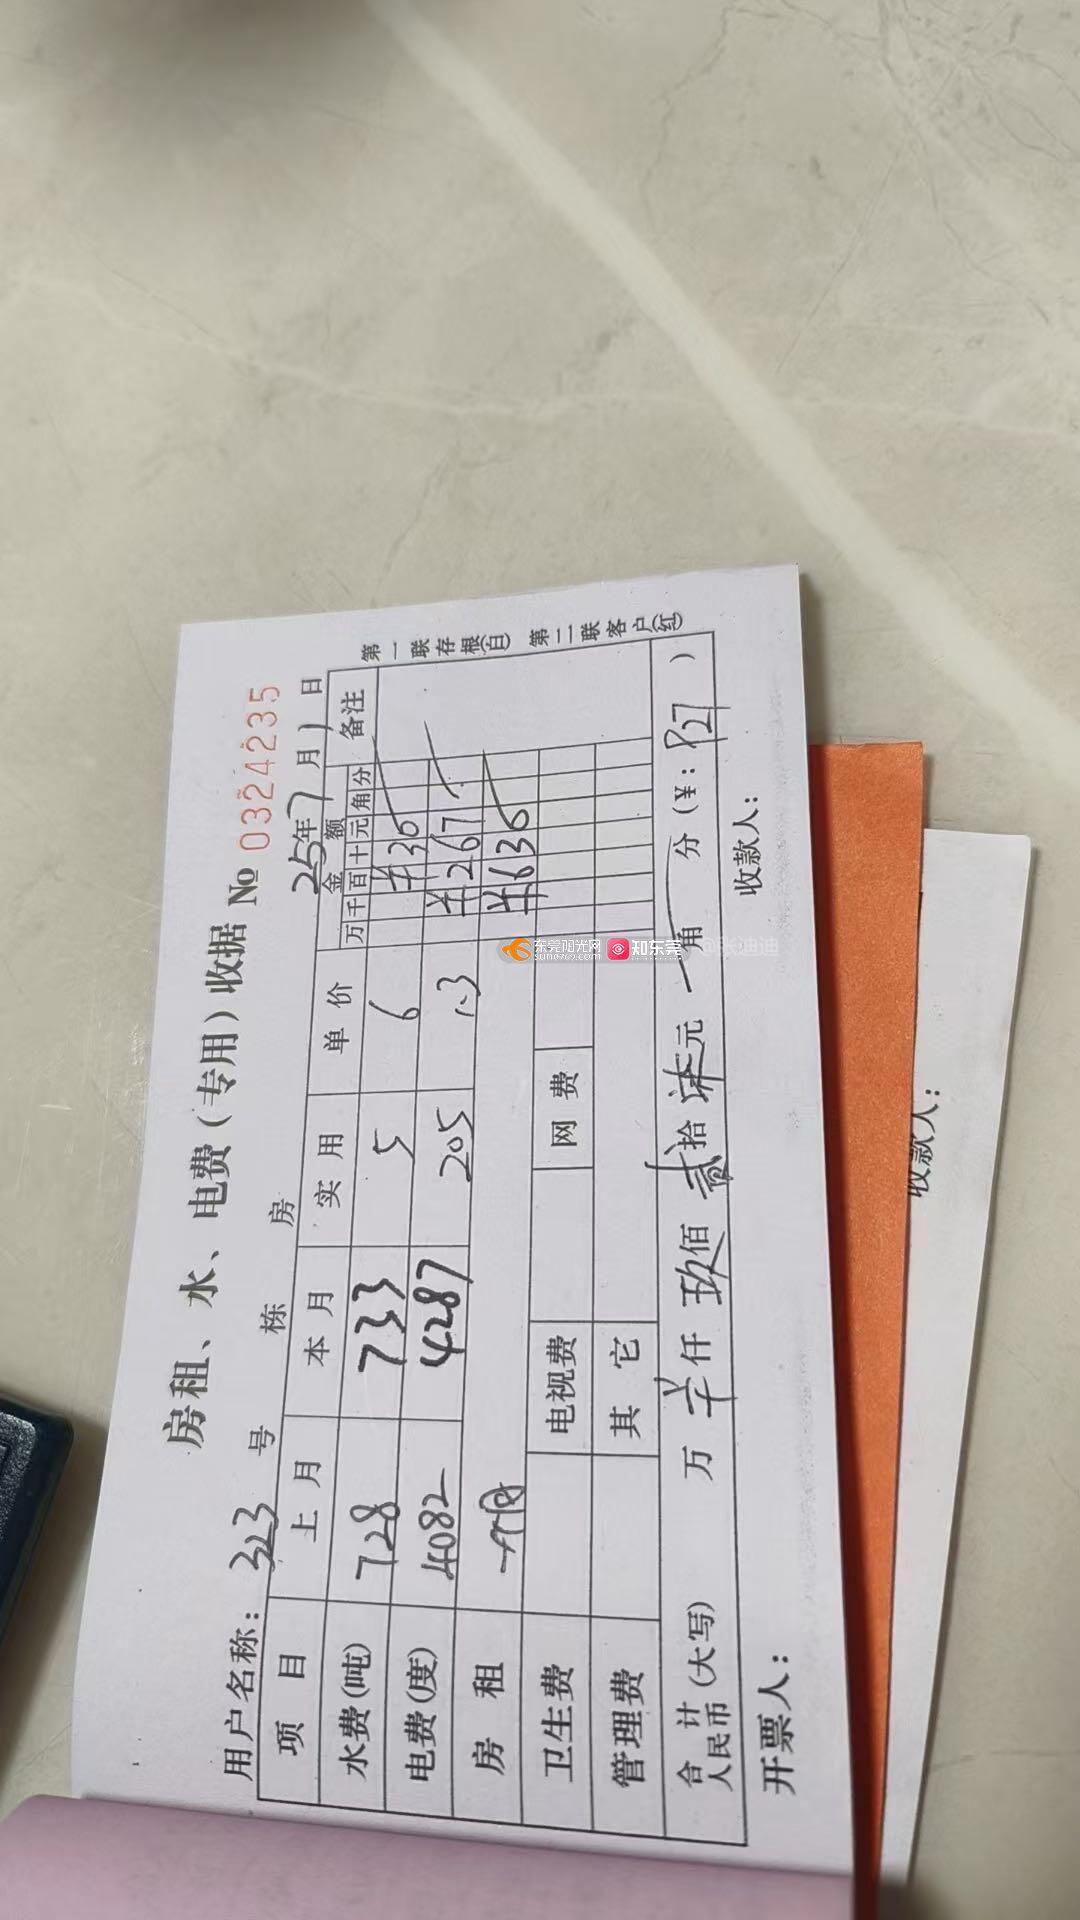 房租、水、电费(专用)收据 № 0324235
用户名称：323 号 栋 房 25年7月1日
项目 上月 本月 实用 单价 金额 备注
万 千 百 十 元 角 分
水费(吨) 728 733 5 6 ¥30
电费(度) 4082 4287 205 1.3 ¥267
房租 一个月 ¥630
卫生费 电视费 网费
管理费 其它
合计人民币(大写) 万 仟 玖佰 贰拾 柒元 角 分 (¥: 927 )
开票人： 收款人：
第一联存根(白) 第二联客户(红)
收款人：
东莞阳光网
sun0769.com
知东莞
@张迪迪